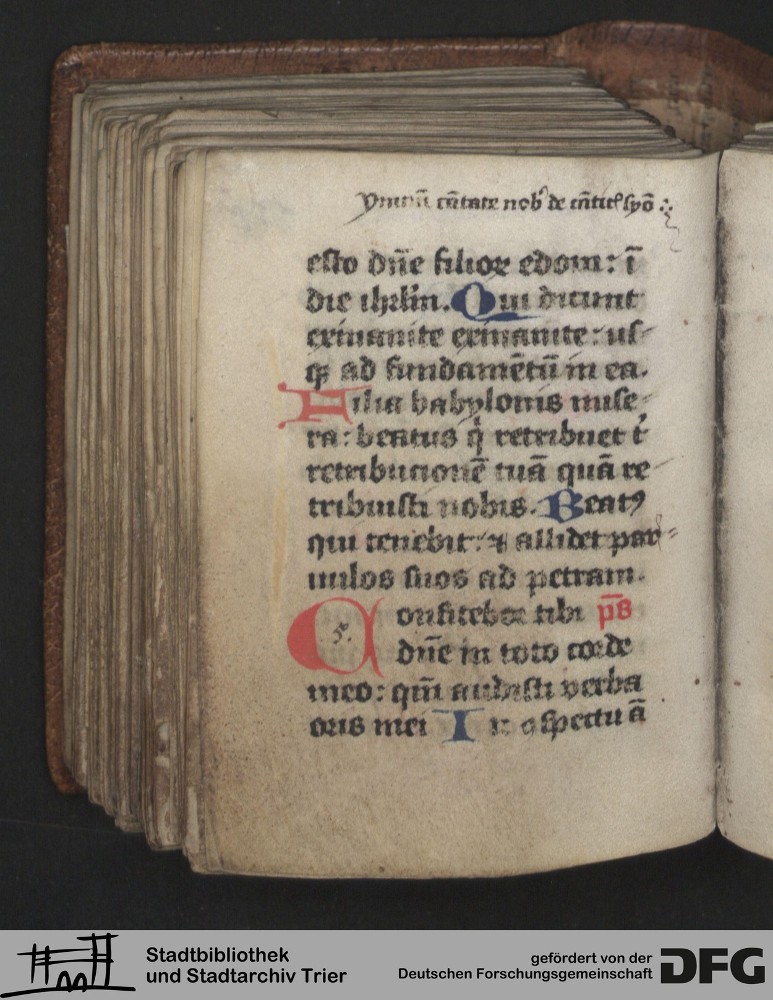 Ymnū cātate nob̄ de cātic̄ syō :·
esto dn̄e filioꝝ edom: ī
die ihrl̄m. Qui dicunt
exinanite exinanite: us
qꝫ ad fundamētū in ea.
Filia babylonis mise
ra: beatus q̇ retribuet t̄
retribucionē tuā quā re
tribuisti nobis. Beatꝰ
qui tenebit: ⁊ allidet par
uulos suos ad petram.
Confitebor tibi p̄s
dn̄e in toto corde
meo: qm̄ audisti verba
oris mei In ꝯspectu ā
Stadtbibliothek
und Stadtarchiv Trier
gefördert von der
Deutschen Forschungsgemeinschaft
DFG